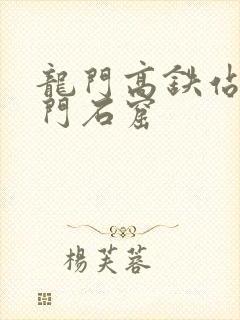 龍門高鉄佔
門石窟
楊芙蓉